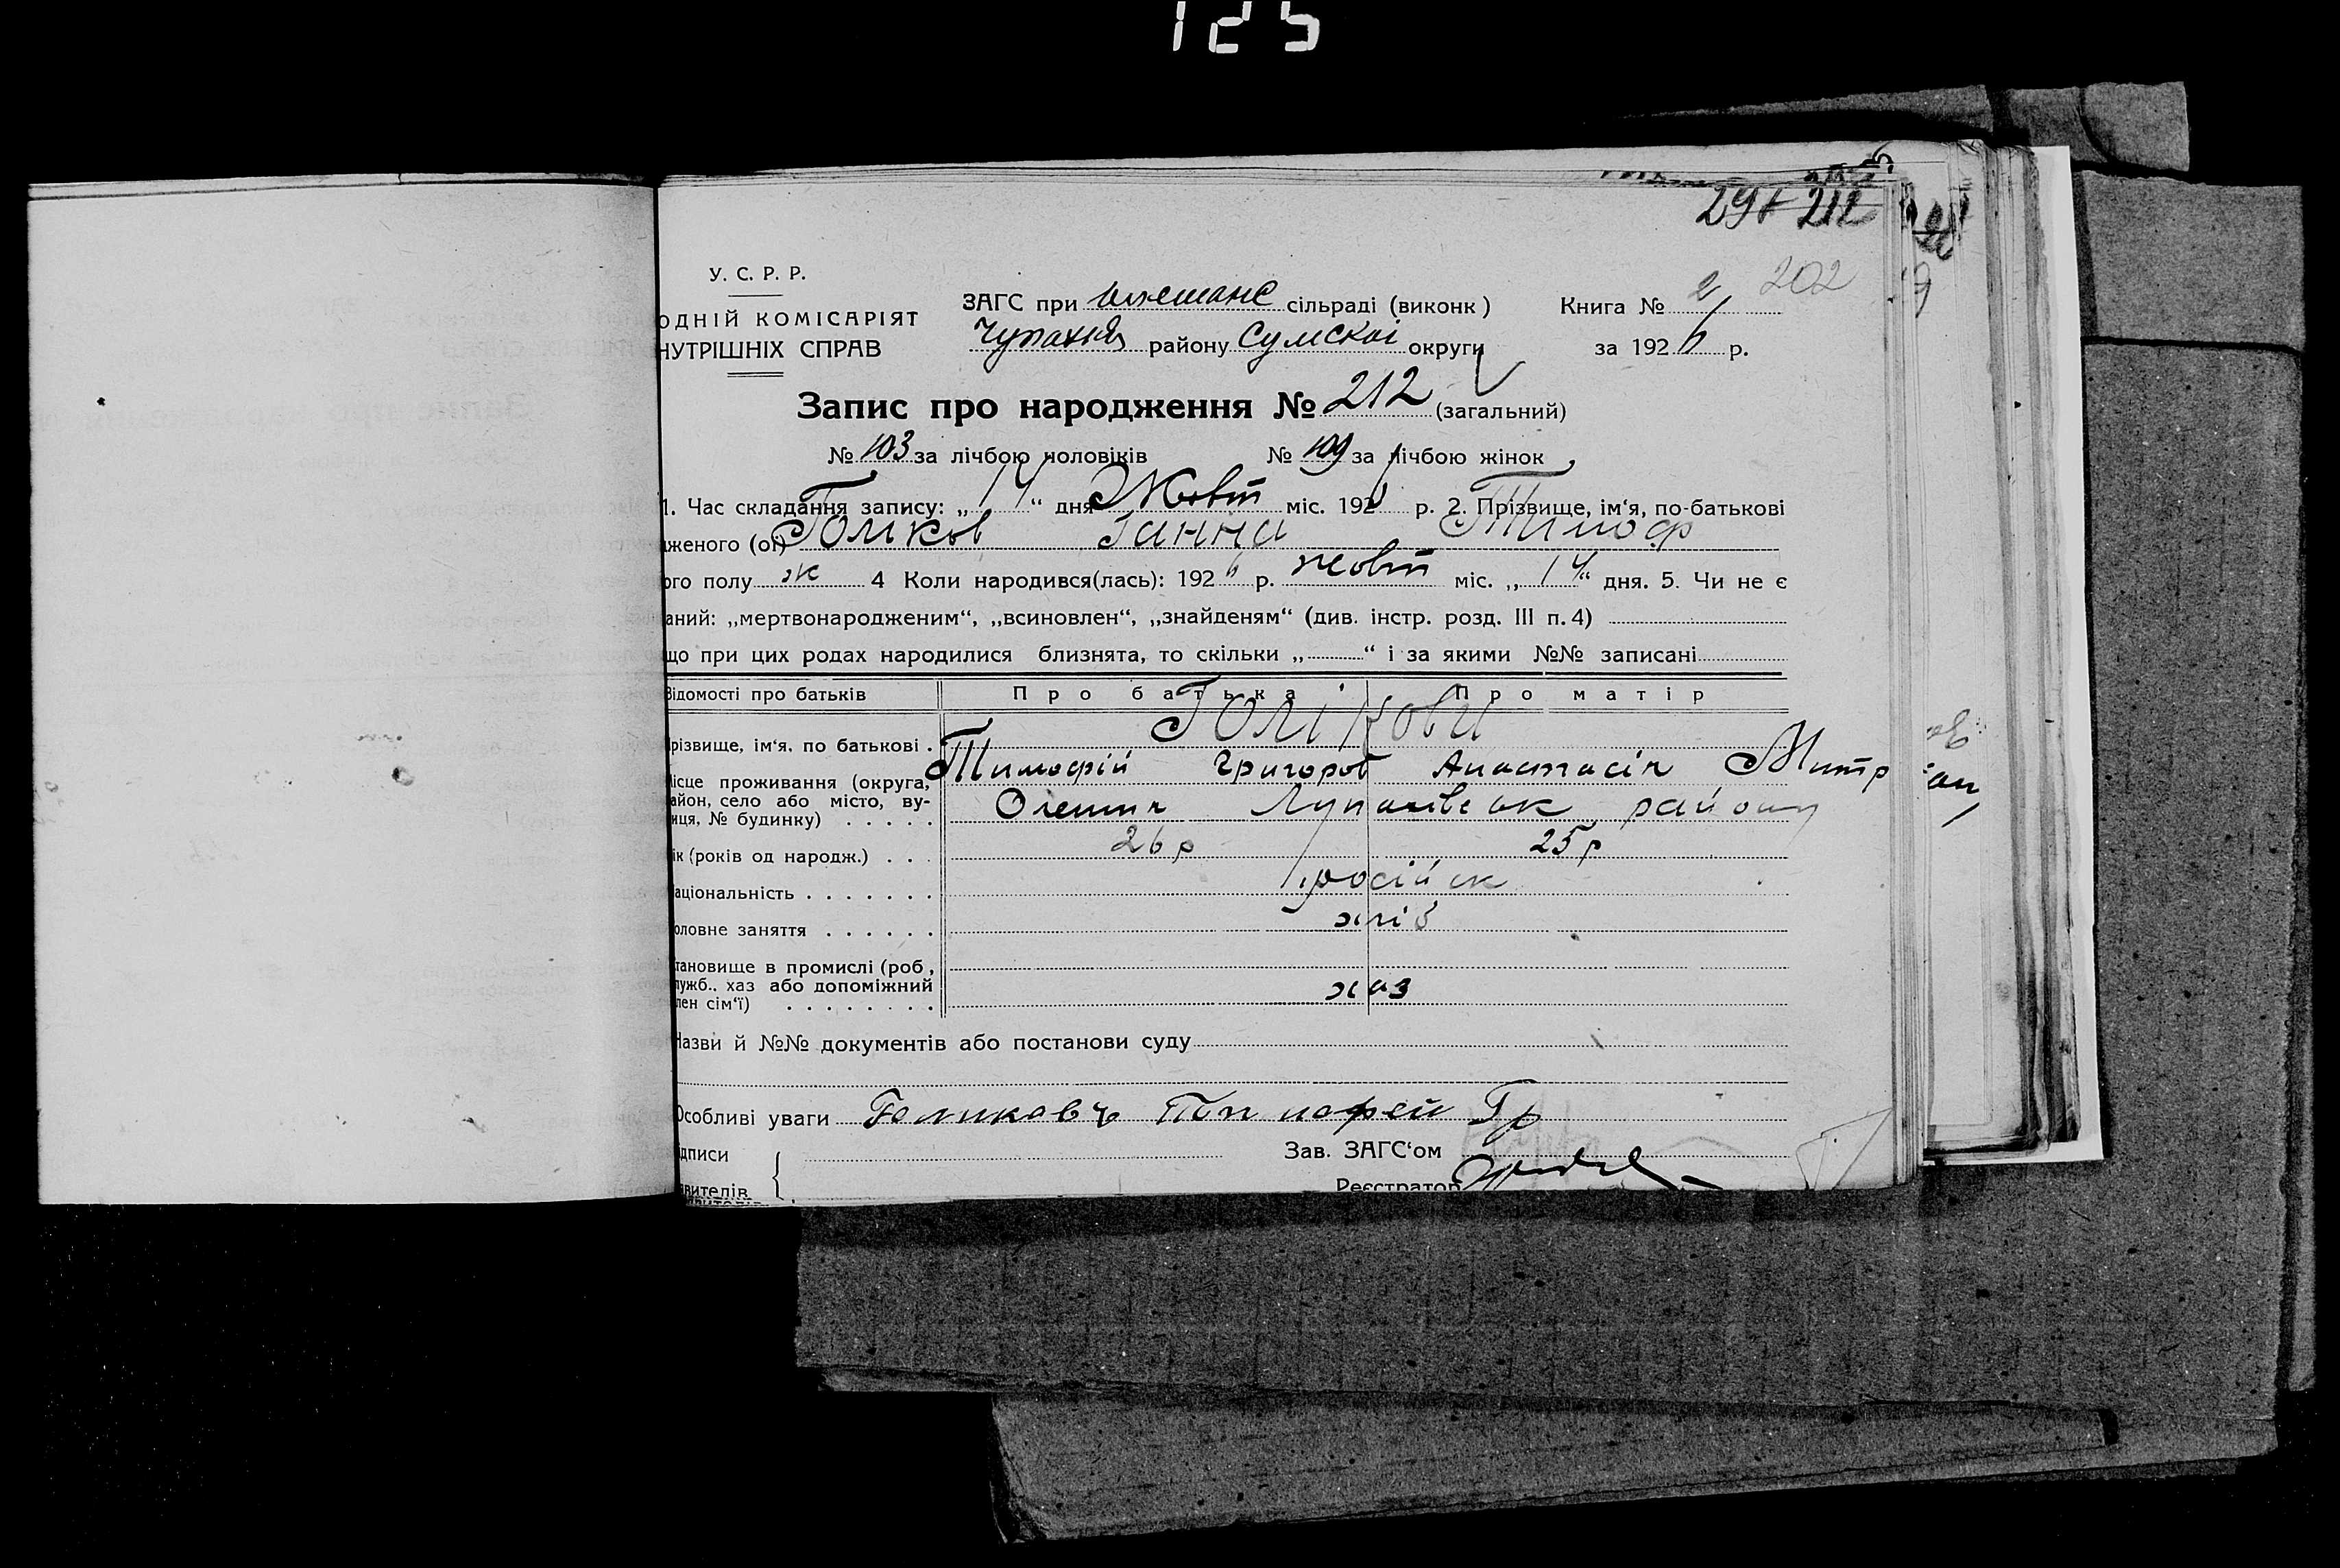 125
297 212
202
У. С. Р. Р.
ОДНІЙ КОМІСАРІЯТ
НУТРІШНІХ СПРАВ
ЗАГС при сільраді (виконк)
району Сумскоі округи
Книга № 2
за 1926 р.
Запис про народження № 212 (загальний)
№ 103 за лічбою чоловіків № 109 за лічбою жінок
1. Час складання запису: „14“ дня Жовт міс. 1926 р. 2. Прізвище, ім‘я, по-батькові
женого (ої) Голіков Ганна Тимоф
ого полу ж 4 Коли народився(лась): 1926 р. жовт міс. „14“ дня. 5. Чи не є
аний: „мертвонародженим“, „всиновлен“, „знайденям“ (див. інстр. розд. III п. 4)
що при цих родах народилися близнята, то скільки „ “ і за якими №№ записані
Відомості про батьків Про батька Про матір
Голікови
різвище, ім‘я, по батькові . Тимофій Григоров Анастасія Митр
ісце проживання (округа,
айон, село або місто, ву-
иця, № будинку) . . . . . Олешня району
ік (років од народж.) . . . 26 р 25 р
аціональність . . . . . . . російск
оловне заняття . . . . . . хліб
тановище в промислі (роб,
лужб., хаз або допоміжний
лен сім‘ї) . . . . . . . . хаз
Назви й №№ документів або постанови суду
Особливі уваги Голикавъ Гр
дписи
явителів
Зав. ЗАГС‘ом
Реєстратор